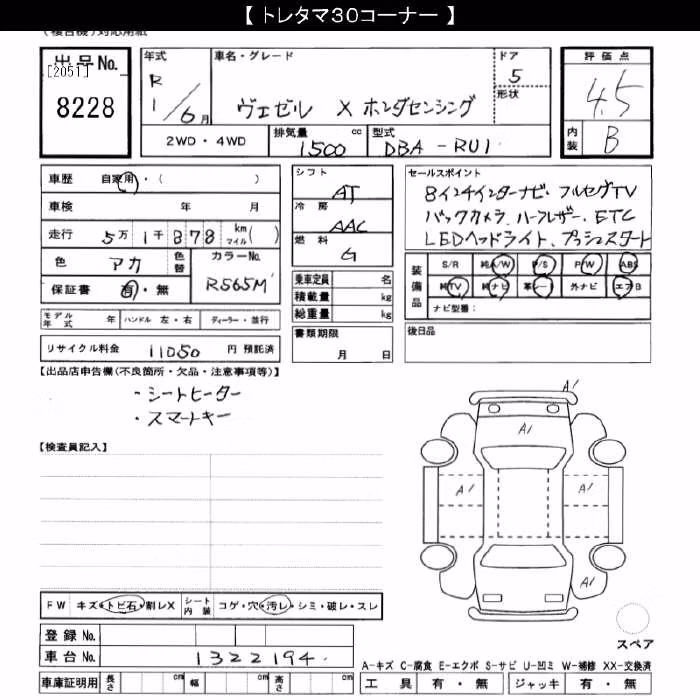 【 トレタマ30コーナー 】
(複合機)対応用紙
出品No. [2051] 8228
年式 R1/6月
車名・グレード ヴェゼル X ホンダセンシング
ドア 5
形状
評価点 4.5
内装 B
2WD・4WD 排気量 1500 cc 型式 DBA-RU1
車歴 自家用・( )
車検 年 月
走行 5万1千878 km マイル( )
色 アカ 色替 カラーNo. R565M
保証書 有・無
モデル年式 年 ハンドル 左・右 ディーラー・並行
リサイクル料金 11050 円 預託済
シフト AT
冷房 AAC
燃料 G
乗車定員 名
積載量 kg
総重量 kg
書類期限
月 日
セールスポイント
8インチインターナビ・フルセグTV
バックカメラ、ハーフレザー、ETC
LEDヘッドライト、プッシュスタート
装備品 S/R 純A/W P/S P/W ABS
純TV 純ナビ 革シート 外ナビ エアB
ナビ型番:
後日品
【出品店申告欄(不良箇所・欠品・注意事項等)】
・シートヒーター
・スマートキー
【検査員記入】
A1
A1
A1 A1
A1
FW キズ・トビ石・割レX シート内装 コゲ・穴・汚レ・シミ・破レ・スレ
登録No.
車台No. 1322194
車庫証明用 長さ cm 幅 cm 高さ cm
スペア
A-キズ C-腐食 E-エクボ S-サビ U-凹ミ W-補修 XX-交換済
工具 有・無 ジャッキ 有・無